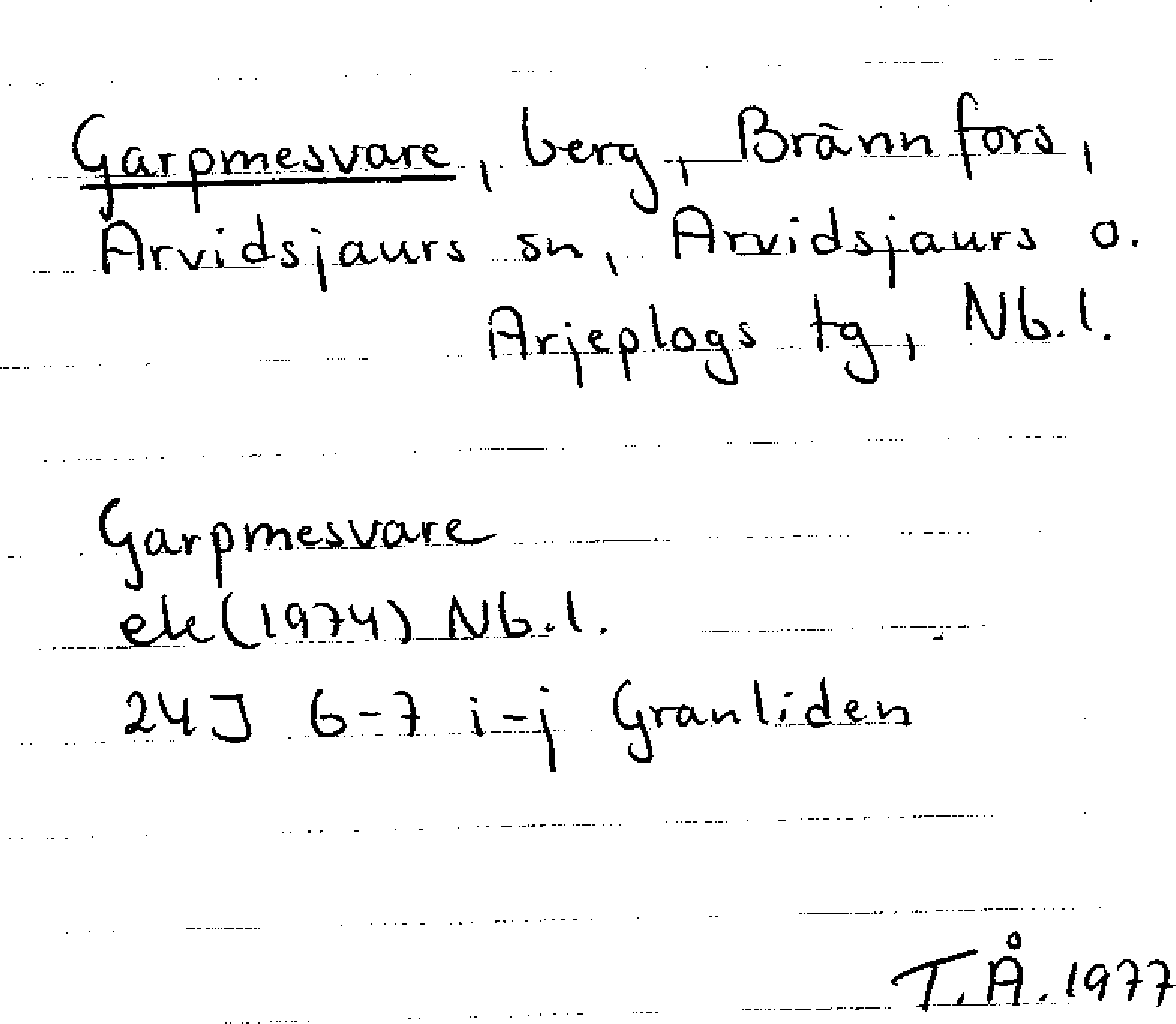 Garpmesvare, berg, Brännfors,
Arvidsjaurs sn, Arvidsjaurs o.
Arjeplogs tg, Nb.l.
Garpmesvare
ek (1974) Nb.l.
24J 6-7 i-j Granliden
T.Å. 1977